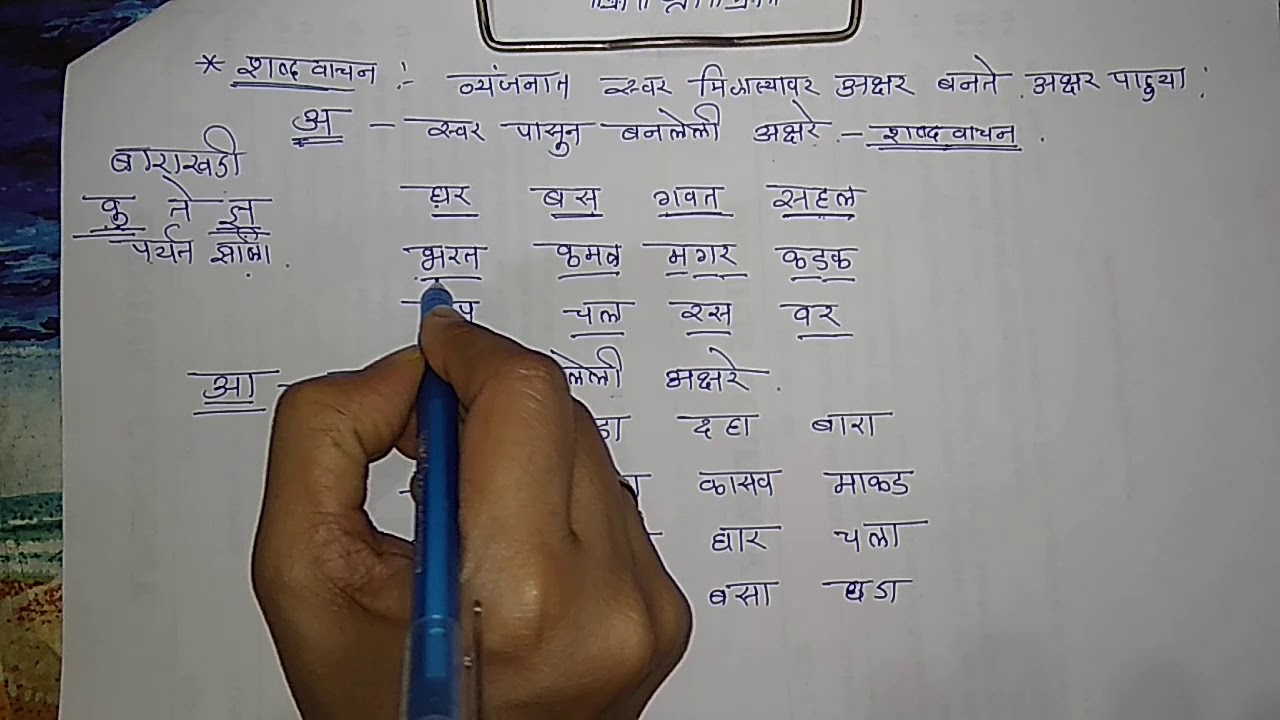 * शब्द वाचन :- व्यंजनात स्वर मिळाल्यावर अक्षर बनते. अक्षर पाहुया :
अ - स्वर पासुन बनलेली अक्षरे - शब्द वाचन .
बाराखडी
क ते ज्ञ
पर्यंत
घर बस गवत सहल
भरत कमळ मगर कडक
चल रस वर
आ - अक्षरे .
दहा बारा
कासव माकड
घार चला
बसा घडा